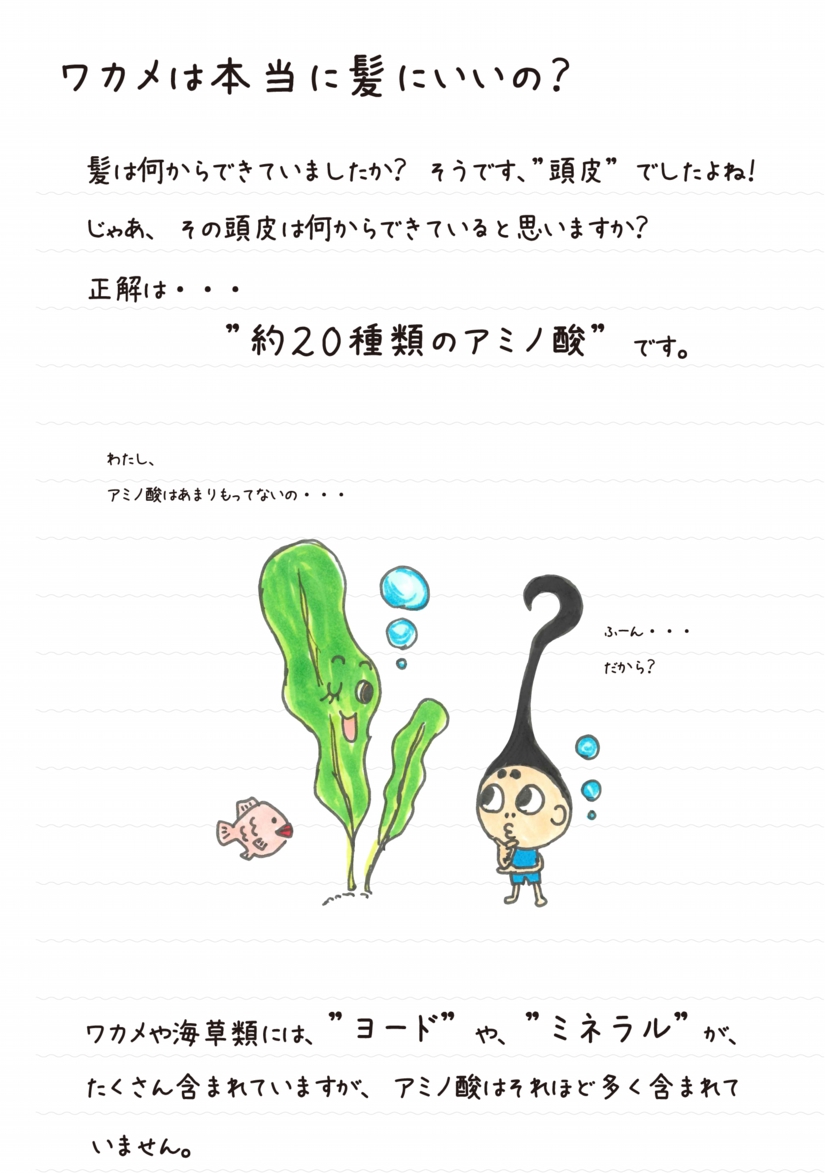 ワカメは本当に髪にいいの?
髪は何からできていましたか? そうです、”頭皮” でしたよね!
じゃあ、 その頭皮は何からできていると思いますか?
正解は・・・
”約20種類のアミノ酸” です。
わたし、
アミノ酸はあまりもってないの・・・
ふーん・・・
だから?
ワカメや海草類には、”ヨード” や、”ミネラル” が、
たくさん含まれていますが、 アミノ酸はそれほど多く含まれて
いません。